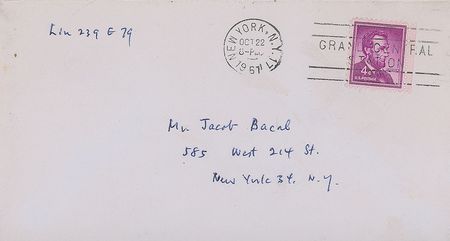 Lin 239 E 79
NEW YORK, N.Y. 17
OCT 22
1961
GRAND CENTRAL
STATION
4¢
U.S. POSTAGE
Mr. Jacob Bacal
585 West 214 St.
New York 34. N.Y.